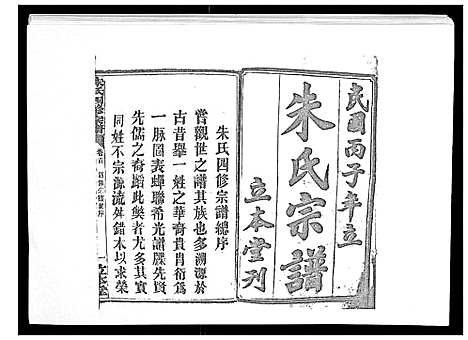 民國丙子年立
朱氏宗譜
立本堂刋
朱氏四修宗譜總序
嘗觀世之譜其族也多溯源於
古昔舉一姓之華裔貴肖衍為
一脈圖表蟬聯希光譜牒先賢
先儒之裔蹈此獘者尤多其實
同姓不宗源流舛錯木以求榮
朱氏四修宗譜
卷首